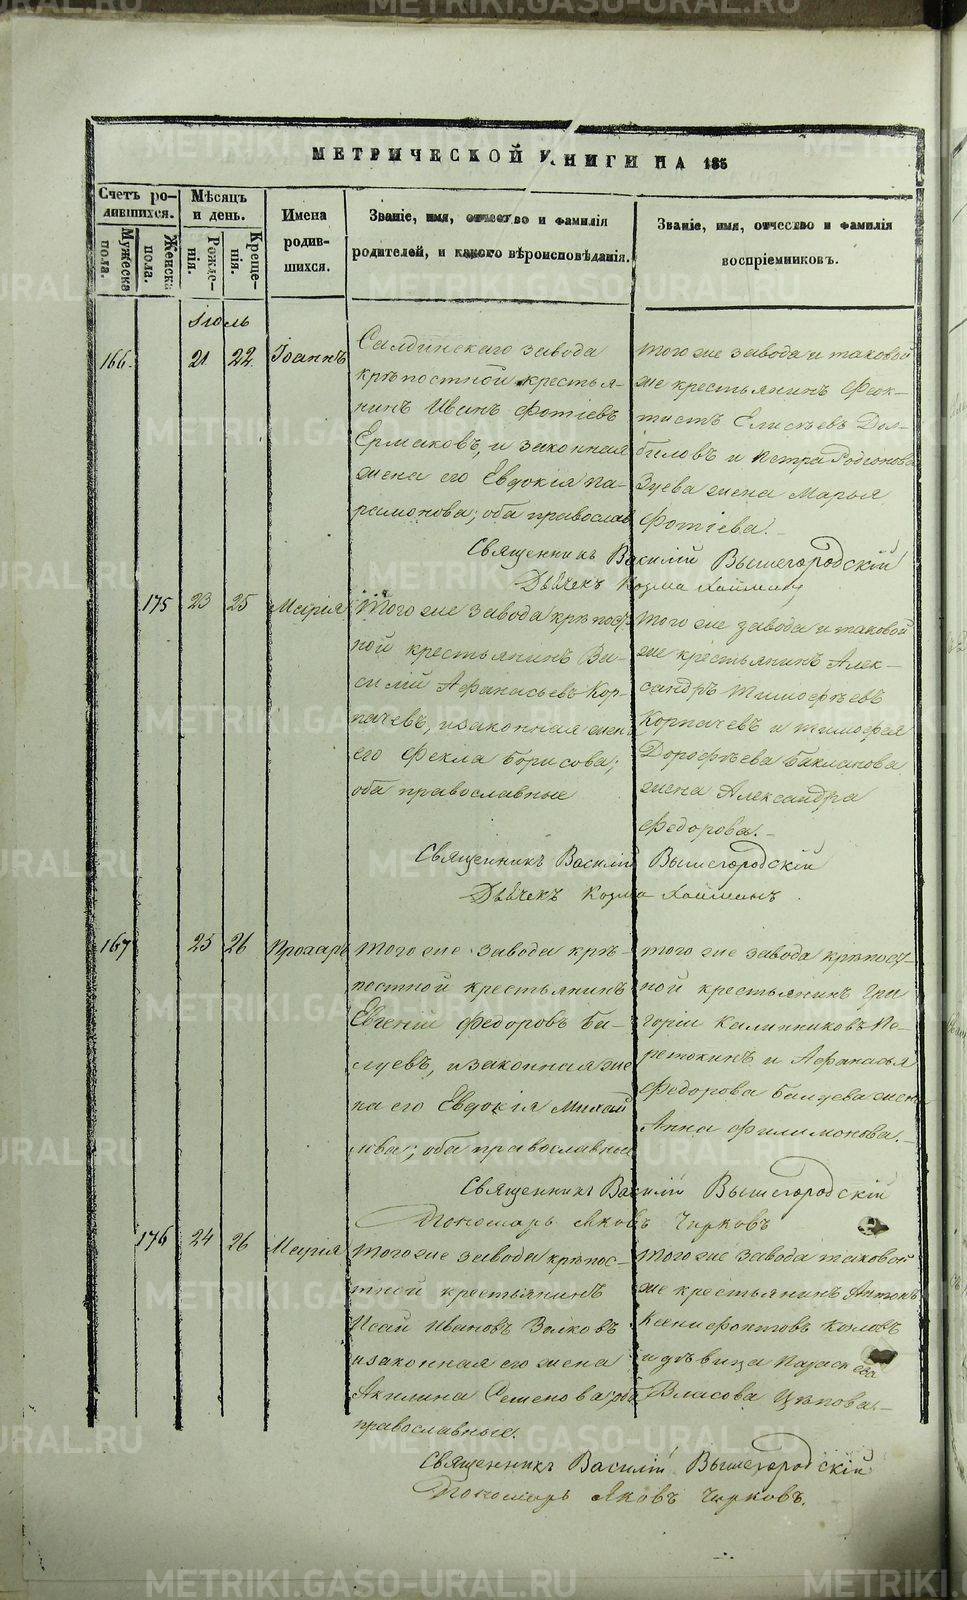 МЕТРИЧЕСКОЙ КНИГИ НА 185
Счетъ ро-
дившихся.
Мужеска
пола.
Женска
пола.
Мѣсяцъ
и день.
Рожде-
нія.
Креще-
нія.
Имена
родив-
шихся.
Званіе, имя, отчество и фамилія
родителей, и какого вѣроисповѣданія.
Званіе, имя, отчество и фамилія
воспріемниковъ.
Іюль
166. 21 22. Іоаннъ
Салдинскаго завода
крѣпостной крестья-
нинъ Иванъ Фотіевъ
Ермаковъ, и законная
жена его Евдокія Па-
рамонова; оба православ
того же завода и таковой
же крестьянинъ Феок-
тистъ Елисѣевъ Дол-
биловъ и Петра Родіонова
Зуева жена Марья
Фотіева.
Священникъ Василій Вышегородскій
Дьячекъ Козма
175 23 25 Марія
Того же завода крѣпост-
ной крестьянинъ Ва-
силій Афанасьевъ Кор-
пачевъ, и законная жен
его Фекла Борисова;
оба православные
Того же завода и таковой
же крестьянинъ Алек-
сандръ Тимофѣевъ
Корпачевъ и Тимофея
Дорофѣева Бакланова
жена Александра
Федорова.
Священникъ Василій Вышегородскій
Дьячекъ Козма
167 25 26 Прохоръ
Того же завода крѣ-
постной крестьянинъ
Евгеній Федоровъ Ба-
луевъ, и законная же
на его Евдокія Михай
лова; оба православные
того же завода крѣпост-
ной крестьянинъ Гри
горій Калинниковъ Па-
ретокинъ и Афанасья
Федорова Балуева жена
Анна Филимонова.
Священникъ Василій Вышегородскій
Пономарь Яковъ Чирковъ
176 24 26 Марія
Того же завода крѣпос-
тной крестьянинъ
Исай Ивановъ Волковъ
и законная его жена
Акилина Семенова; оба
православные.
Того же завода таковой
же крестьянинъ Антонъ
Ксенифонтовъ Козловъ
и дѣвица Параскева
Власова Цѣпова.
Священникъ Василій Вышегородскій
Пономарь Яковъ Чирковъ.
METRIKI.GASO-URAL.RU